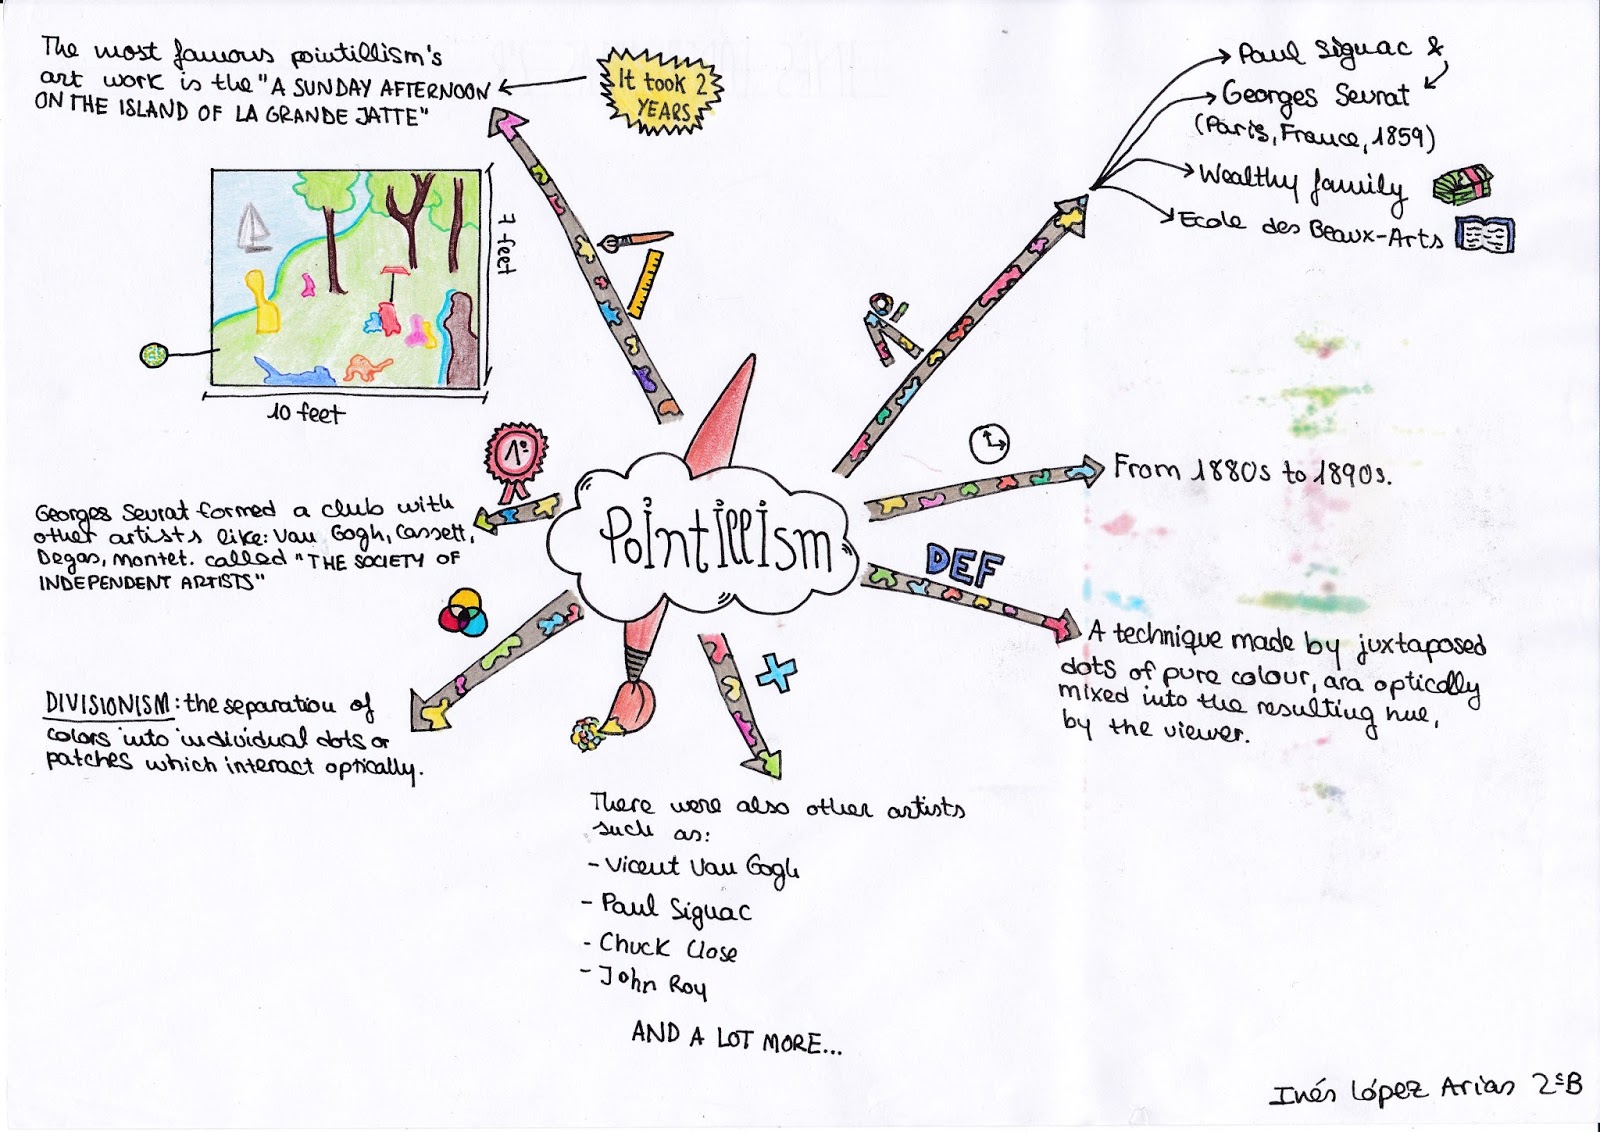 The most famous pointillism's
art work is the "A SUNDAY AFTERNOON
ON THE ISLAND OF LA GRANDE JATTE"
It took 2
YEARS
7 feet
10 feet
Paul Signac &
Georges Seurat
(Paris, France, 1859)
Wealthy family
Ecole des Beaux-Arts
From 1880s to 1890s.
DEF
A technique made by juxtaposed
dots of pure colour, ara optically
mixed into the resulting hue,
by the viewer.
Pointillism
1º
Georges Seurat formed a club with
other artists like: Van Gogh, Cassett,
Degas, Montet. called "THE SOCIETY OF
INDEPENDENT ARTISTS"
DIVISIONISM: the separation of
colors into individual dots or
patches which interact optically.
There were also other artists
such as:
- Vicent Van Gogh
- Paul Signac
- Chuck Close
- John Roy
AND A LOT MORE...
Inés López Arias 2ºB